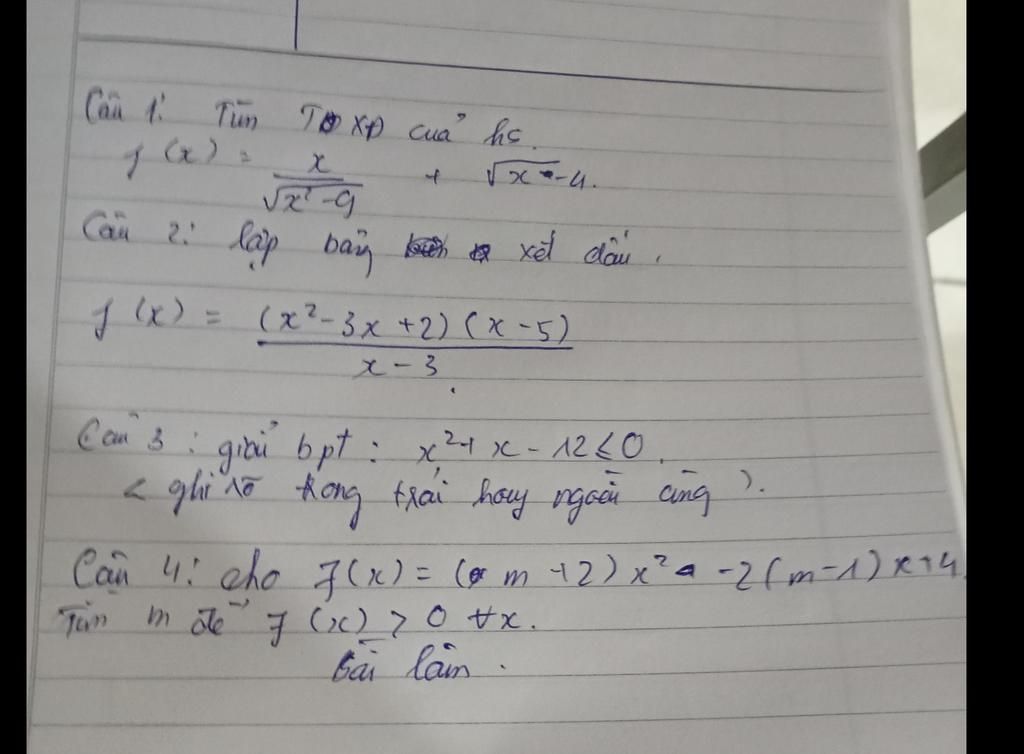 Câu 1: Tìm TXĐ của hs.
f(x) = x / √(x² - 9) + √(x - 4).
Câu 2: lập bảng xét dấu.
f(x) = (x² - 3x + 2)(x - 5) / (x - 3)
Câu 3: giải bpt: x² + x - 12 ≤ 0.
< ghi rõ trong trái hay ngoài cùng ).
Câu 4: cho f(x) = (m + 2)x² - 2(m - 1)x + 4
Tìm m để f(x) > 0 ∀x.
Bài làm.